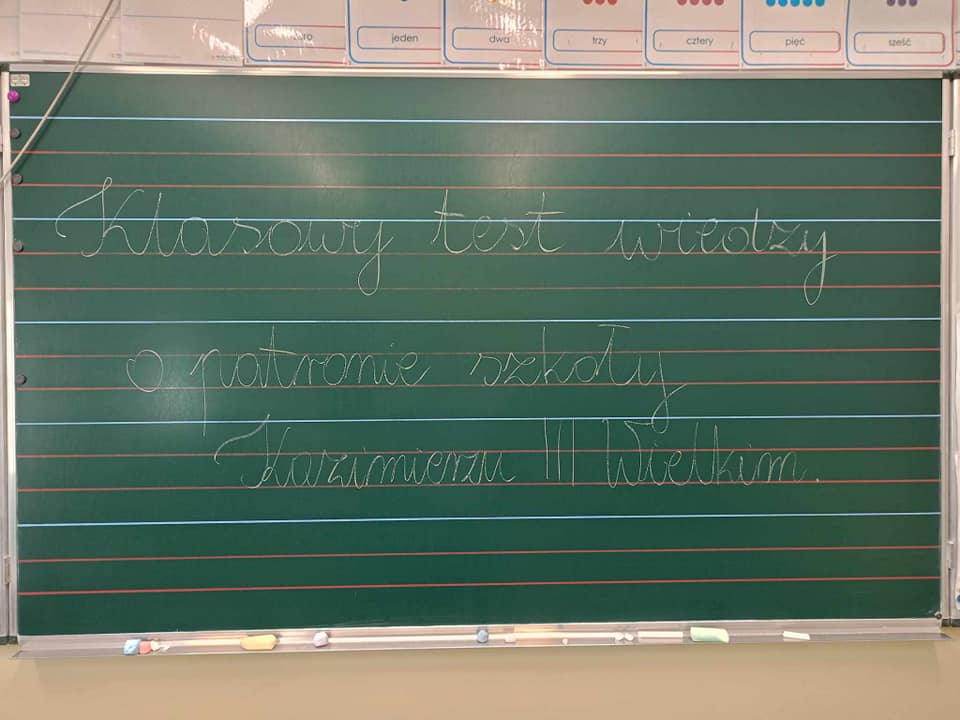 jeden dwa trzy cztery pięć sześć
Klasowy test wiedzy
o patronie szkoły
Kazimierzu III Wielkim.